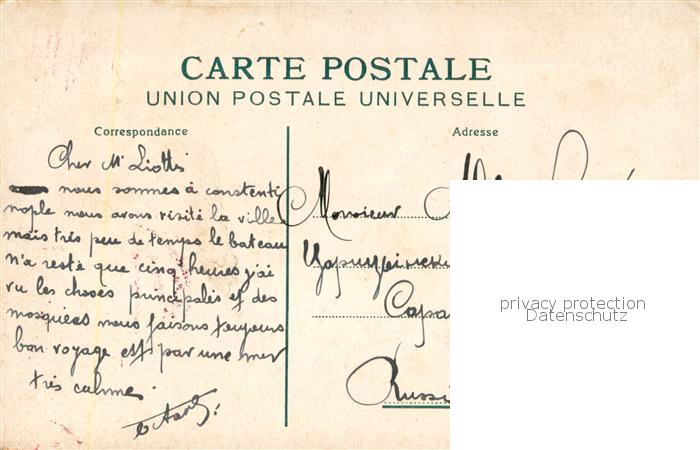 CARTE POSTALE
UNION POSTALE UNIVERSELLE
Correspondance
Cher Mr Liotti
nous sommes à constenti
nople nous avons visité la ville
mais très peu de temps le bateau
n'a resté que cinq heures j'ai
vu les choses principales et des
mosquiees nous faisons toujours
bon voyage est par une mer
très calme
Adresse
Monsieur
Царицинская
Сара
Russi
privacy protection
Datenschutz